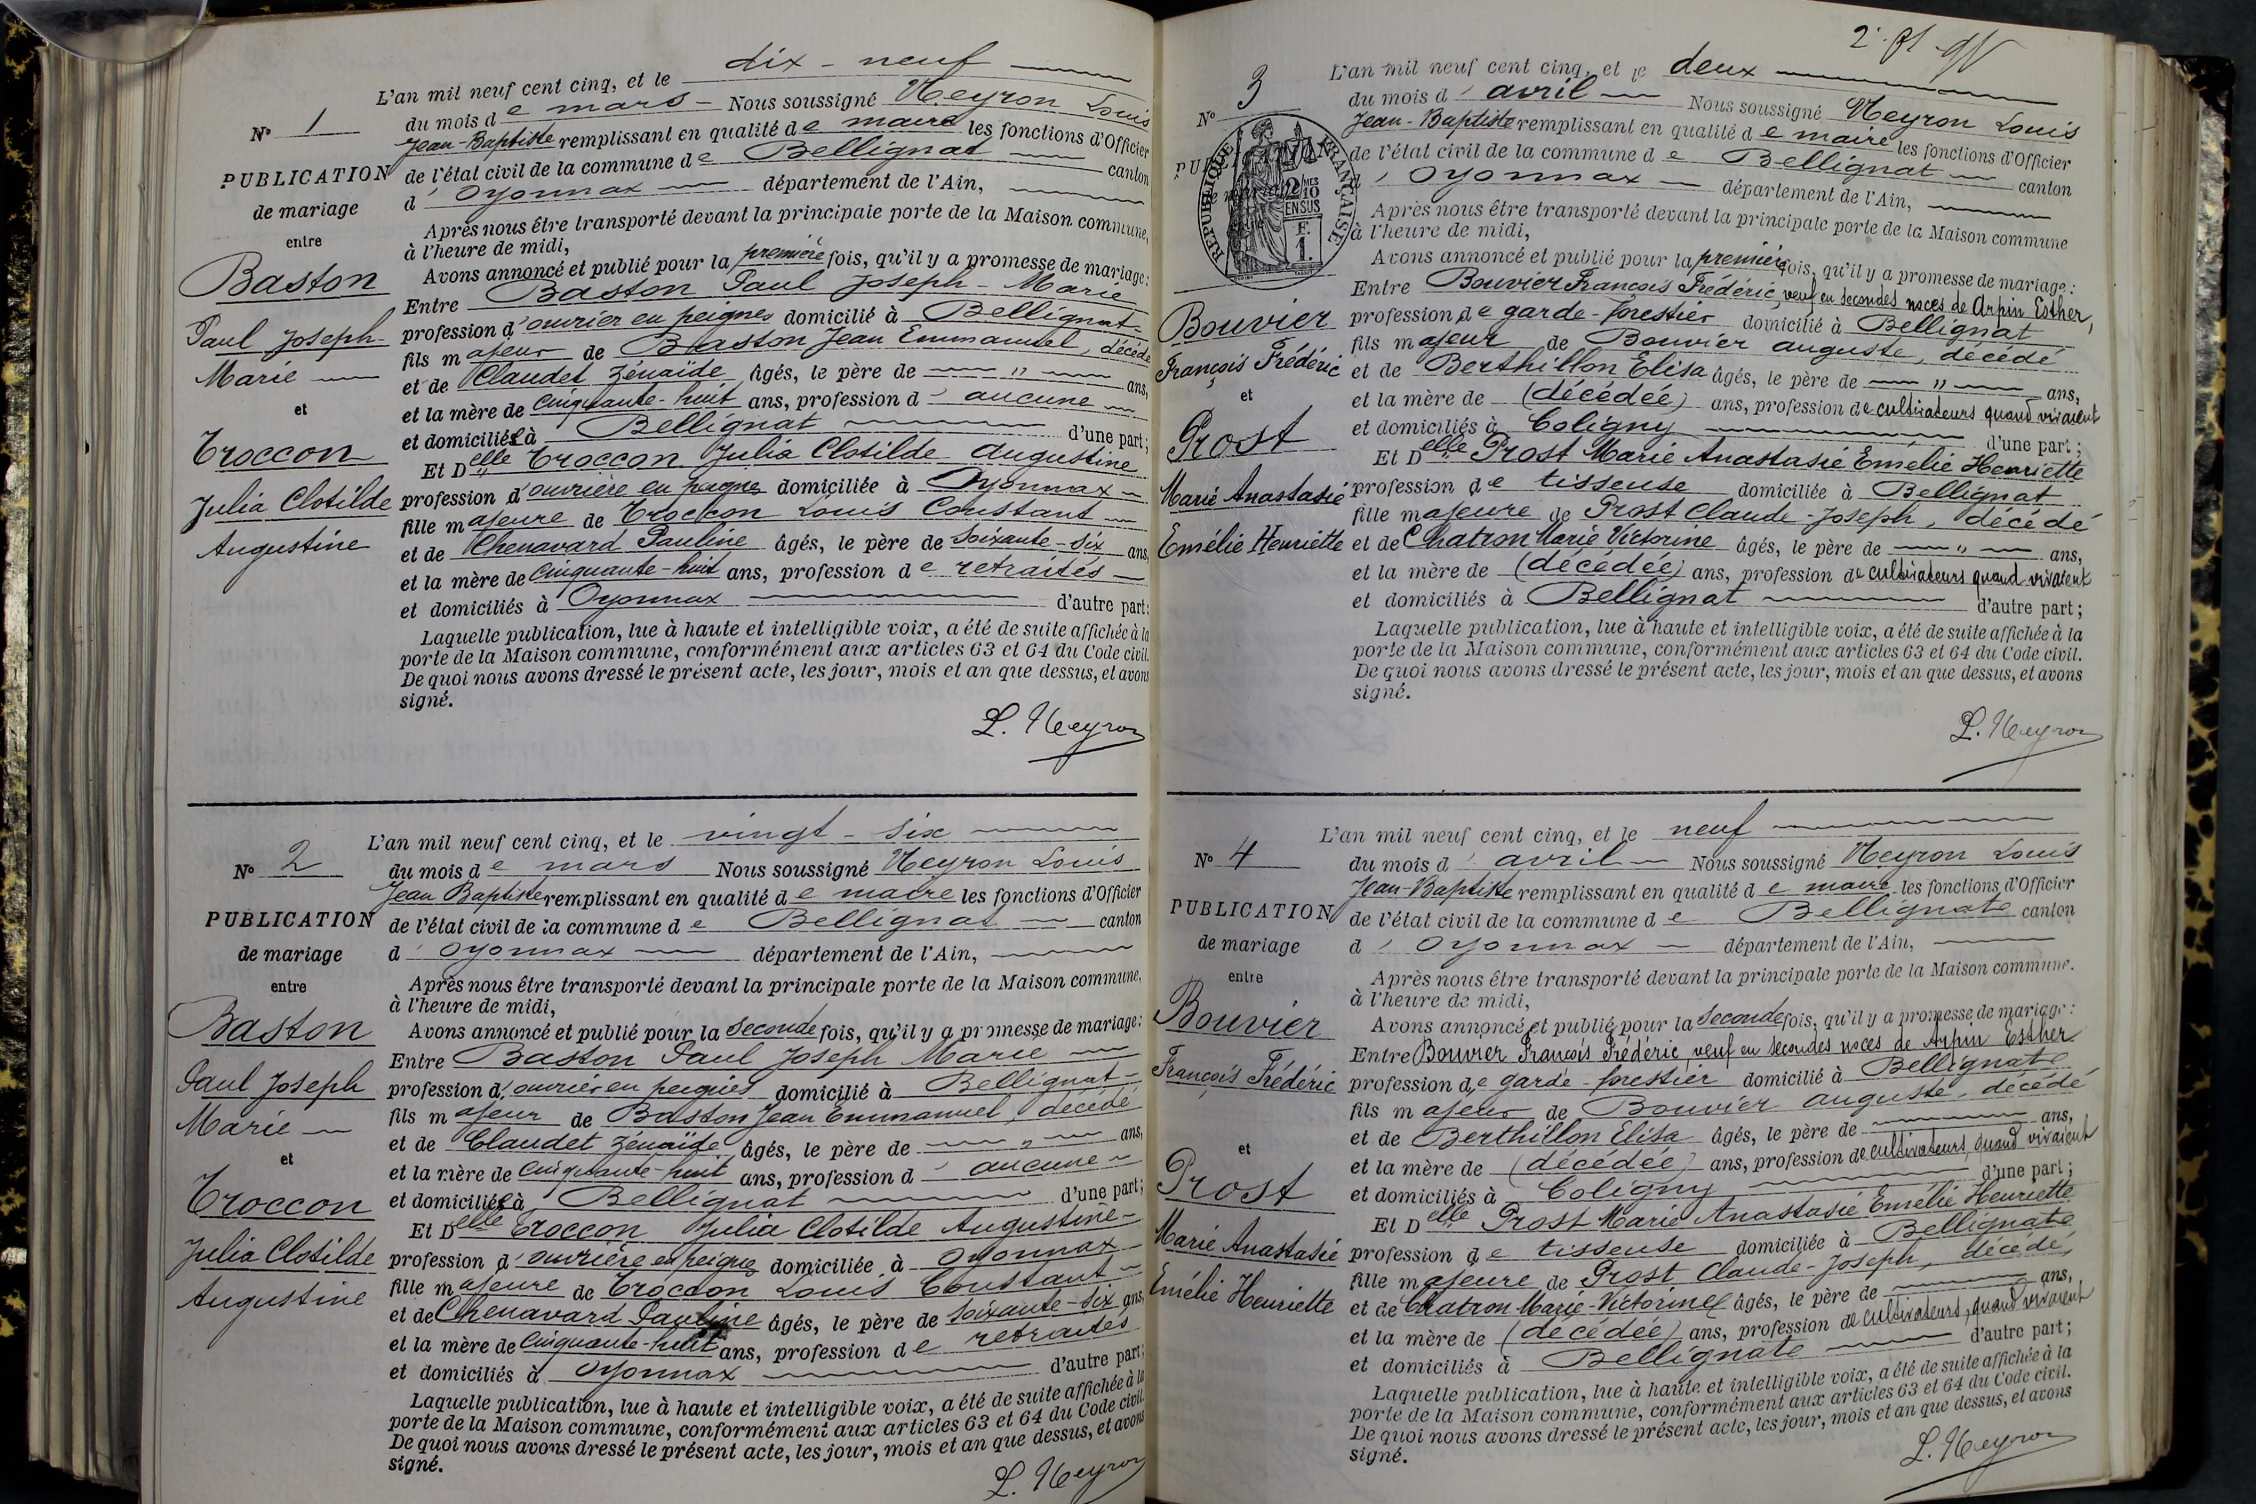 L'an mil neuf cent cinq, et le dix-neuf
N° 1
du mois de mars Nous soussigné Neyron Louis
Jean-Baptiste remplissant en qualité de maire les fonctions d'Officier
PUBLICATION
de l'état civil de la commune de Bellignat canton
de mariage
d'Oyonnax département de l'Ain,
entre
Après nous être transporté devant la principale porte de la Maison commune,
à l'heure de midi,
Avons annoncé et publié pour la première fois, qu'il y a promesse de mariage:
Baston
Entre Baston Paul Joseph-Marie
Paul Joseph-
profession d'ouvrier en peignes domicilié à Bellignat
fils majeur de Baston Jean Emmanuel, décédé
Marie
et de Claudet Zénaïde âgés, le père de " ans,
et
et la mère de cinquante-huit ans, profession d' aucune
et domiciliée à Bellignat d'une part;
Troccon
Et Delle Troccon Julia Clotilde Augustine
Julia Clotilde
profession d'ouvrière en peignes domiciliée à Oyonnax
fille majeure de Troccon Louis Constant
Augustine
et de Chenavard Pauline âgés, le père de soixante-six ans,
et la mère de cinquante-huit ans, profession de retraités
et domiciliés à Oyonnax d'autre part;
Laquelle publication, lue à haute et intelligible voix, a été de suite affichée à la
porte de la Maison commune, conformément aux articles 63 et 64 du Code civil.
De quoi nous avons dressé le présent acte, les jour, mois et an que dessus, et avons
signé.
L. Neyron
L'an mil neuf cent cinq, et le vingt-six
N° 2
du mois de mars Nous soussigné Neyron Louis
Jean Baptiste remplissant en qualité de maire les fonctions d'Officier
PUBLICATION
de l'état civil de la commune de Bellignat canton
de mariage
d'Oyonnax département de l'Ain,
entre
Après nous être transporté devant la principale porte de la Maison commune,
à l'heure de midi,
Avons annoncé et publié pour la seconde fois, qu'il y a promesse de mariage:
Baston
Entre Baston Paul Joseph Marie
Paul Joseph
profession d'ouvrier en peignes domicilié à Bellignat
fils majeur de Baston Jean Emmanuel, décédé
Marie
et de Claudet Zénaïde âgés, le père de " ans,
et
et la mère de cinquante-huit ans, profession d' aucune
et domiciliée à Bellignat d'une part;
Troccon
Et Delle Troccon Julia Clotilde Augustine
Julia Clotilde
profession d'ouvrière en peignes domiciliée à Oyonnax
fille majeure de Troccon Louis Constant
Augustine
et de Chenavard Pauline âgés, le père de soixante-six ans,
et la mère de cinquante-huit ans, profession de retraités
et domiciliés à Oyonnax d'autre part;
Laquelle publication, lue à haute et intelligible voix, a été de suite affichée à la
porte de la Maison commune, conformément aux articles 63 et 64 du Code civil.
De quoi nous avons dressé le présent acte, les jour, mois et an que dessus, et avons
signé.
L. Neyron
L'an mil neuf cent cinq, et le deux
N° 3
du mois d'avril Nous soussigné Neyron Louis
Jean-Baptiste remplissant en qualité de maire les fonctions d'Officier
de l'état civil de la commune de Bellignat canton
d'Oyonnax département de l'Ain,
RÉPUBLIQUE FRANÇAISE
2/10
EN SUS
F.
1.
Après nous être transporté devant la principale porte de la Maison commune
à l'heure de midi,
Avons annoncé et publié pour la première fois, qu'il y a promesse de mariage:
Entre Bouvier François Frédéric, veuf en secondes noces de Arpin Esther,
Bouvier
profession de garde-forestier domicilié à Bellignat
fils majeur de Bouvier Auguste, décédé
François Frédéric
et de Berthillon Elisa âgés, le père de " ans,
et
et la mère de (décédée) ans, profession de cultivateurs quand vivaient
et domiciliés à Coligny d'une part;
Prost
Et Delle Prost Marie Anastasie Emélie Henriette
Marie Anastasie
profession de tisseuse domiciliée à Bellignat
fille majeure de Prost Claude-Joseph, décédé
Emélie Henriette
et de Chatron Marie Victorine âgés, le père de " ans,
et la mère de (décédée) ans, profession de cultivateurs quand vivaient
et domiciliés à Bellignat d'autre part;
Laquelle publication, lue à haute et intelligible voix, a été de suite affichée à la
porte de la Maison commune, conformément aux articles 63 et 64 du Code civil.
De quoi nous avons dressé le présent acte, les jour, mois et an que dessus, et avons
signé.
L. Neyron
L'an mil neuf cent cinq, et le neuf
N° 4
du mois d'avril Nous soussigné Neyron Louis
Jean-Baptiste remplissant en qualité de maire les fonctions d'Officier
PUBLICATION
de l'état civil de la commune de Bellignate canton
de mariage
d'Oyonnax département de l'Ain,
entre
Après nous être transporté devant la principale porte de la Maison commune.
à l'heure de midi,
Avons annoncé et publié pour la seconde fois, qu'il y a promesse de mariage:
Bouvier
Entre Bouvier François Frédéric, veuf en secondes noces de Arpin Esther
François Frédéric
profession de garde-forestier domicilié à Bellignate
fils majeur de Bouvier Auguste, décédé
et de Berthillon Elisa âgés, le père de ans,
et
et la mère de (décédée) ans, profession de cultivateurs, quand vivaient
et domiciliés à Coligny d'une part;
Prost
Et Delle Prost Marie Anastasie Emélie Henriette
Marie Anastasie
profession de tisseuse domiciliée à Bellignate
fille majeure de Prost Claude-Joseph, décédé,
Emélie Henriette
et de Chatron Marie-Victorine âgés, le père de ans,
et la mère de (décédée) ans, profession de cultivateurs, quand vivaient
et domiciliés à Bellignate d'autre part;
Laquelle publication, lue à haute et intelligible voix, a été de suite affichée à la
porte de la Maison commune, conformément aux articles 63 et 64 du Code civil.
De quoi nous avons dressé le présent acte, les jour, mois et an que dessus, et avons
signé.
L. Neyron